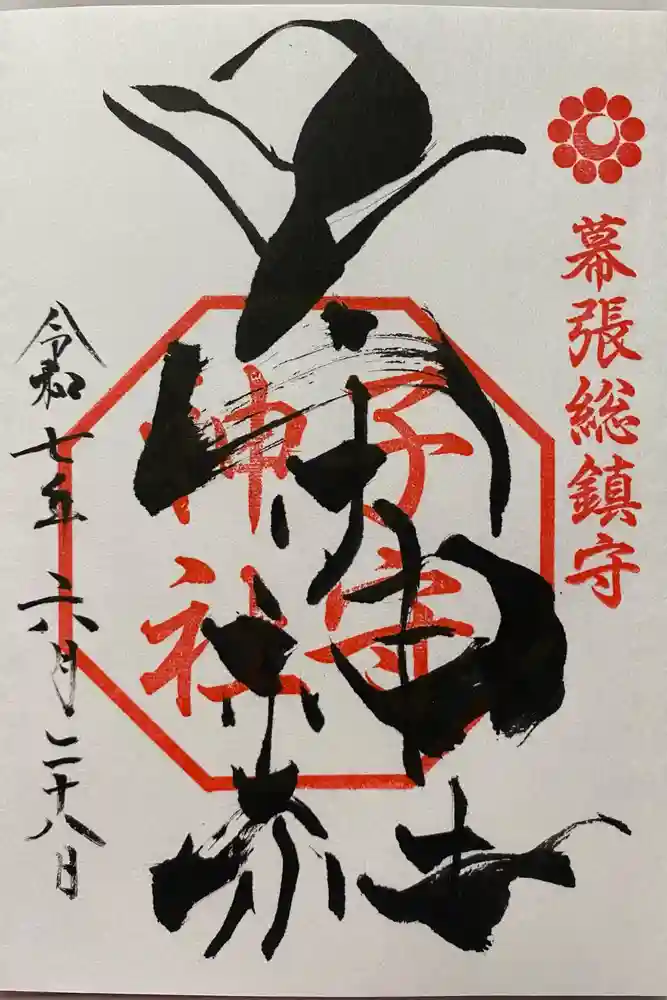 幕張総鎮守
子守
神社
子守神社
令和七年六月二十八日